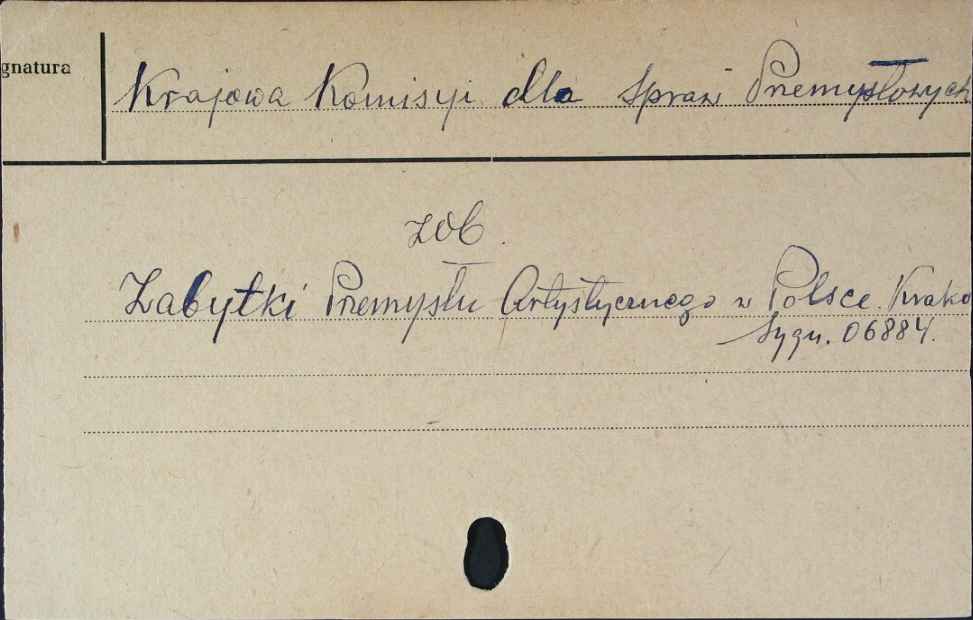 gnatura
Krajowa Komisyi dla spraw Przemysłowych
zob.
Zabytki Przemysłu Artystycznego w Polsce. Krako
Sygn. 06884.